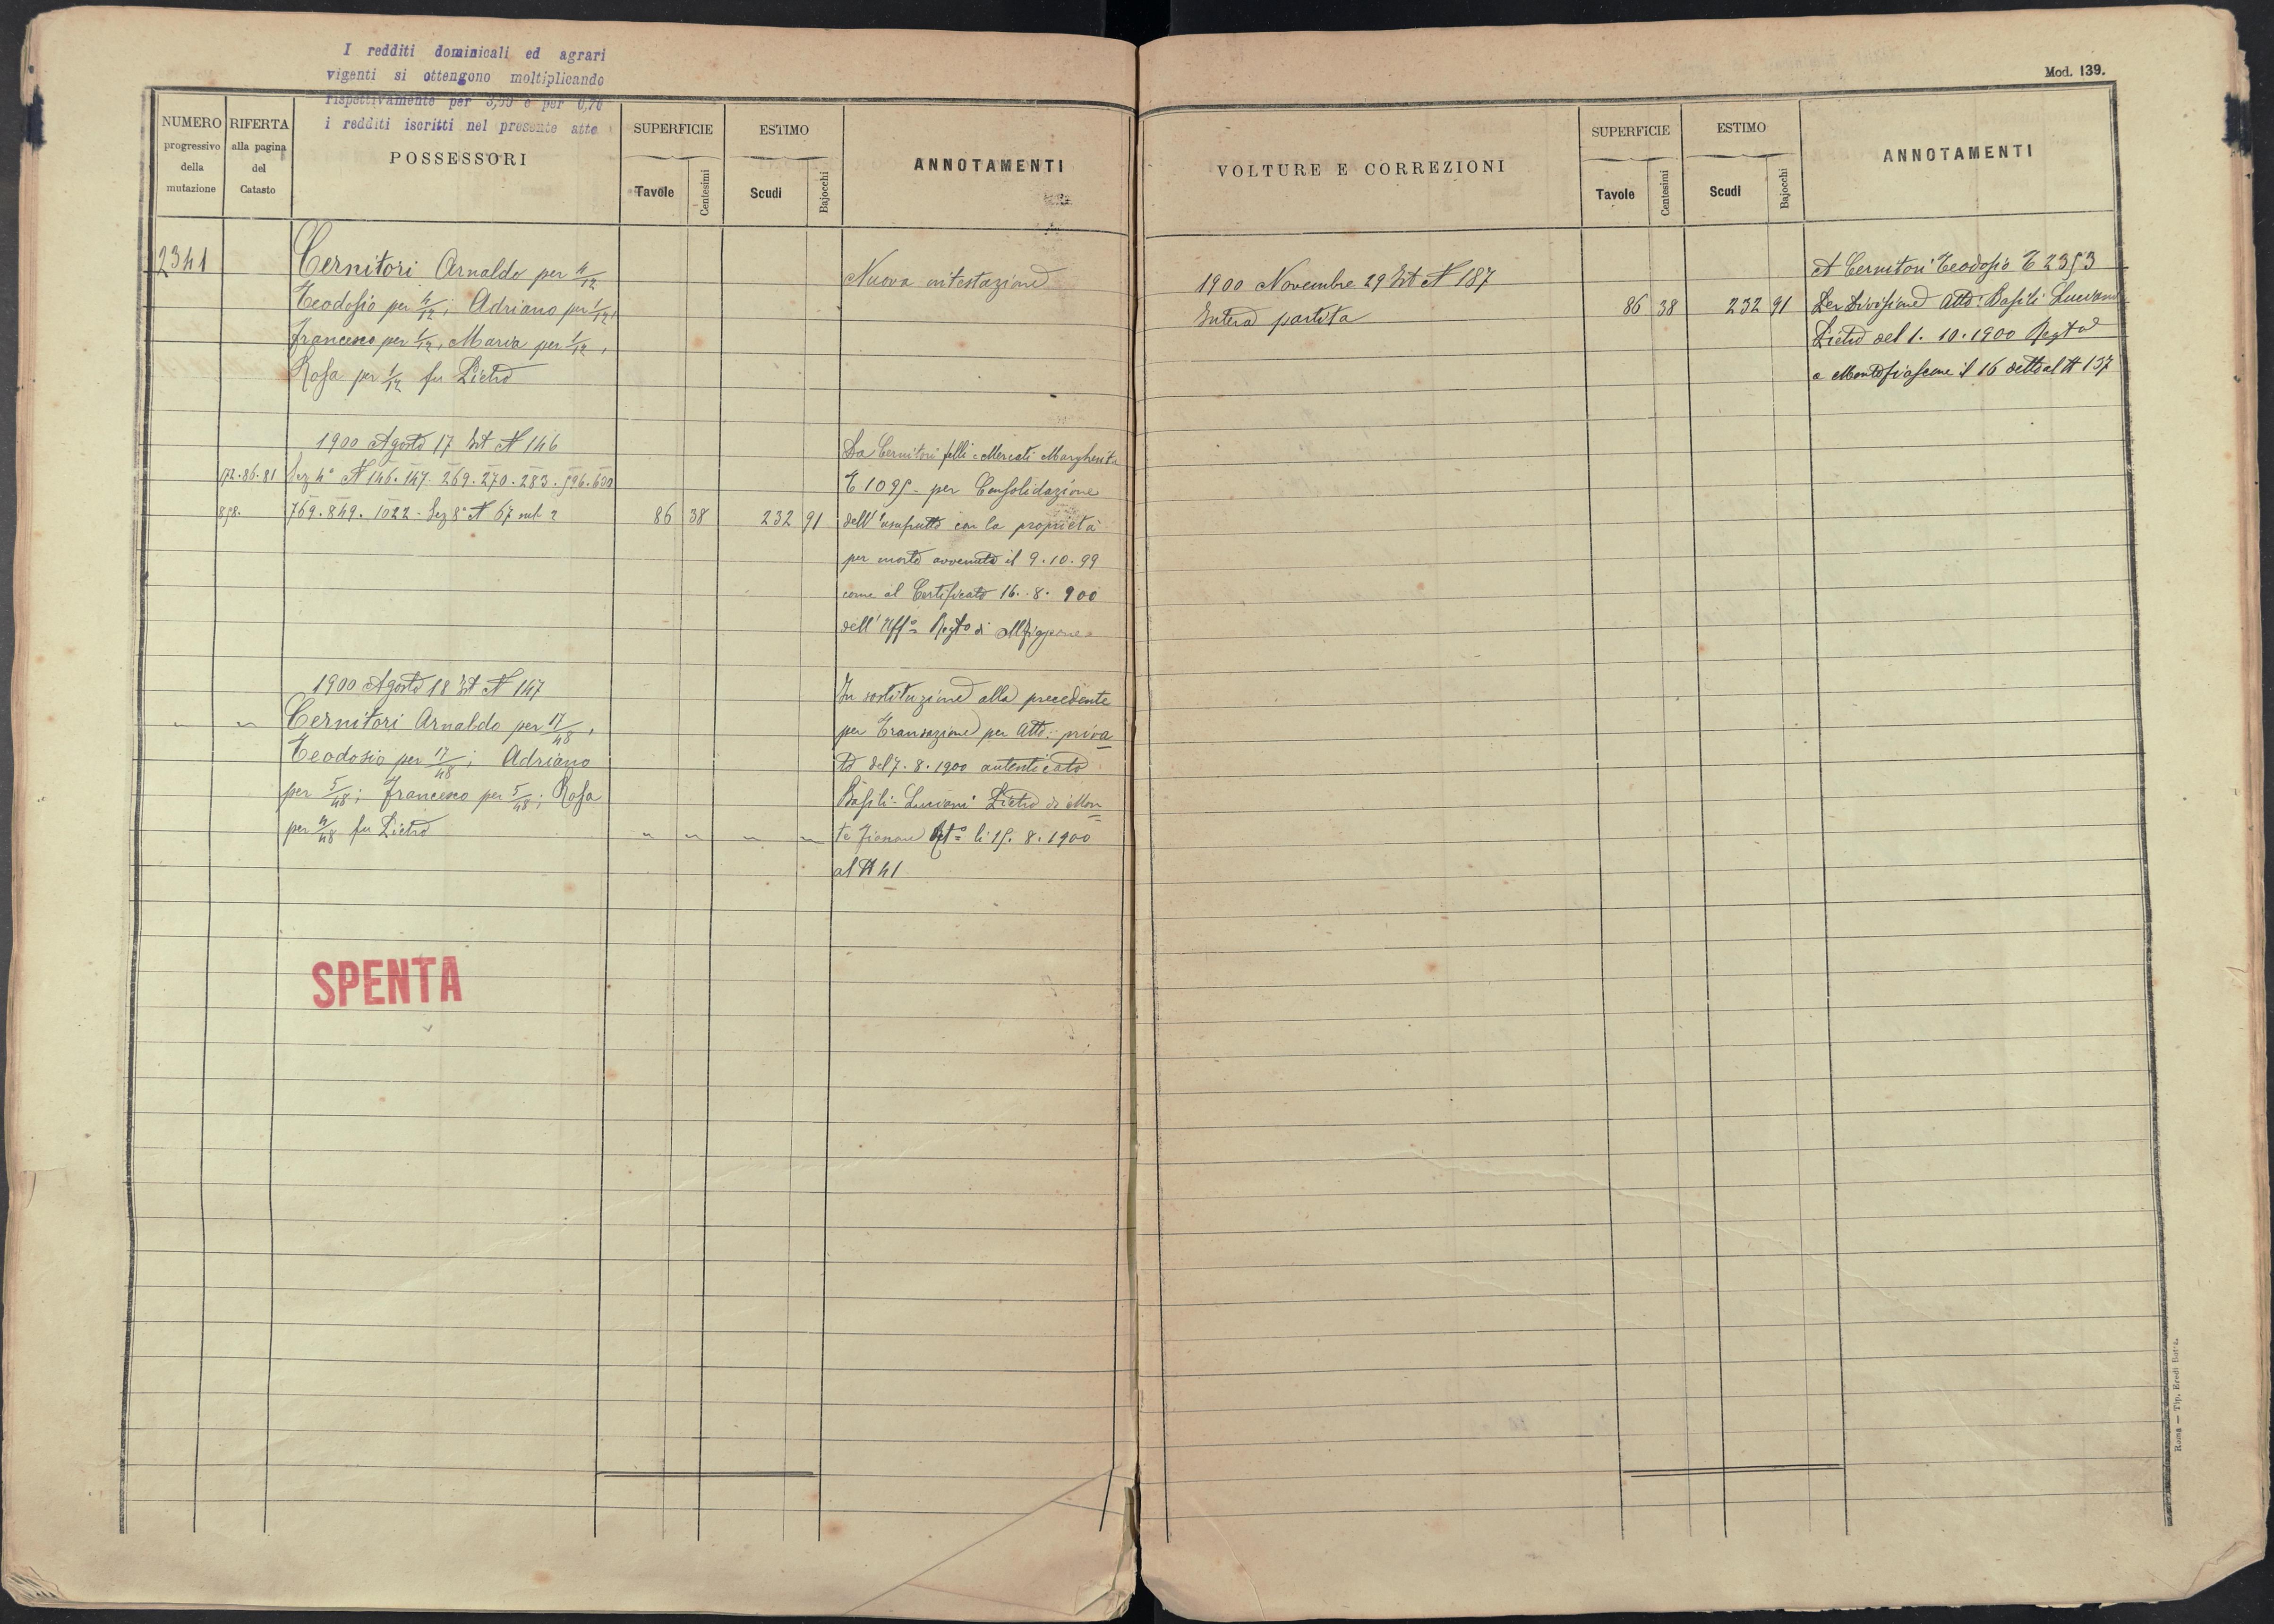 I redditi dominicali ed agrari
vigenti si ottengono moltiplicando
rispettivamente per
i redditi iscritti nel presente atto
NUMERO
progressivo
della
mutazione
RIFERTA
alla pagina
del
Catasto
POSSESSORI
SUPERFICIE
Tavole
Centesimi
ESTIMO
Scudi
Bajocchi
ANNOTAMENTI
2341
Cernitori Arnaldo per 4/12
Teodosio per 4/12; Adriano per 1/12,
Francesco per 1/12, Maria per 1/12,
Rosa per 1/12 fu Pietro
Nuova intestazione
1900 Agosto 17 Nt N 146
172.86.81 Sez 4ª N 146.147.269.270.283.596.630
858. 769.849.1022 - Sez 8ª N 67 sub 2 86 38 232 91
Da Cernitori flli e Mercati Margherita
E 1095 - per Consolidazione
dell'usufrutto con la proprietà
per morte avvenuta il 9.10.99
come al Certificato 16.8.900
dell' Uffº Regto di
1900 Agosto 18 Nt N 147
" " Cernitori Arnaldo per 17/48,
Teodosio per 17/48; Adriano
per 5/48; Francesco per 5/48; Rosa
per 4/48 fu Pietro " " " "
In sostituzione alla precedente
per Transazione per Atto: priva
to del 7.8.1900 autenticato
Basili: Luciani Pietro di Mon
te Fiascone Rtº li 15.8.1900
al N 41
SPENTA
Mod. 139.
VOLTURE E CORREZIONI
SUPERFICIE
Tavole
Centesimi
ESTIMO
Scudi
Bajocchi
ANNOTAMENTI
1900 Novembre 29 Nt N 187
Intera partita 86 38 232 91
A Cernitori Teodosio E 2353
Per Divisione Atto: Basili Luciani
Pietro del 1.10.1900 Regto
a Montefiascone il 16 detto al N 137
Roma — Tip. Eredi Botta.